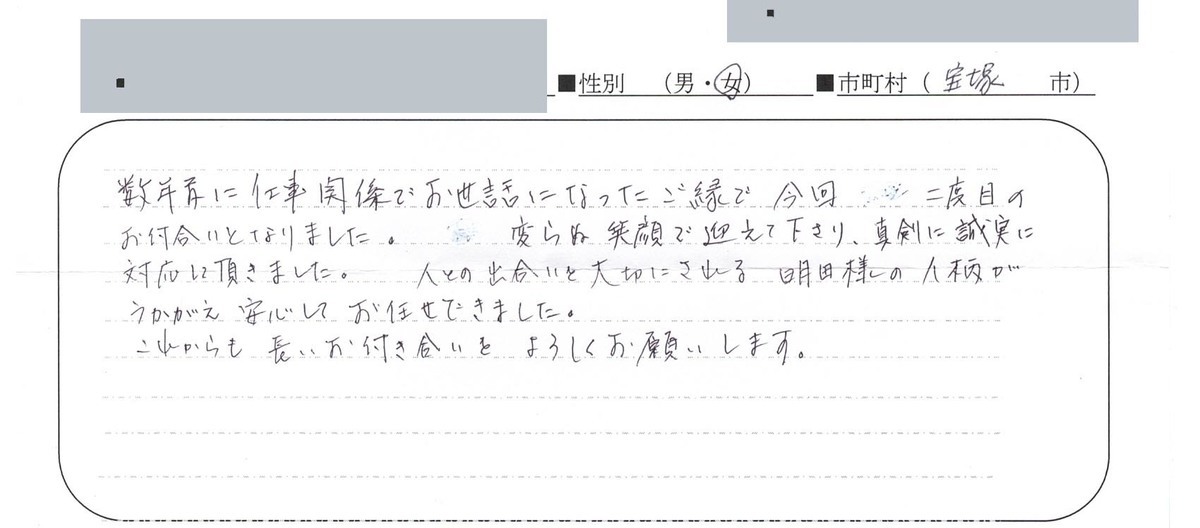 ■性別 (男・女) ■市町村 ( 宝塚 市)
数年前に仕事関係でお世話になったご縁で 今回 二度目の
お付合いとなりました。 変らぬ笑顔で迎えて下さり、真剣に誠実に
対応して頂きました。 人との出合いを大切にされる 明田様の人柄が
うかがえ 安心して お任せできました。
これからも 長いお付き合いを よろしくお願いします。